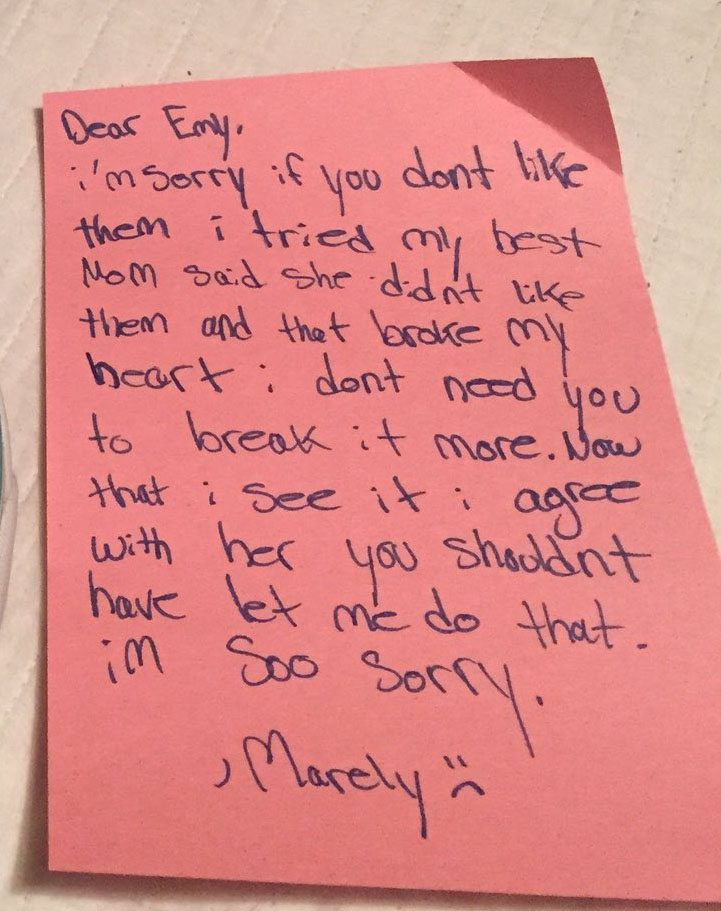 Dear Emy.
i'm sorry if you dont like
them i tried my best
Mom said she didnt like
them and that broke my
heart i dont need you
to break it more. Now
that i see it i agree
with her you shouldnt
have let me do that.
im soo sorry.
, Marely :(